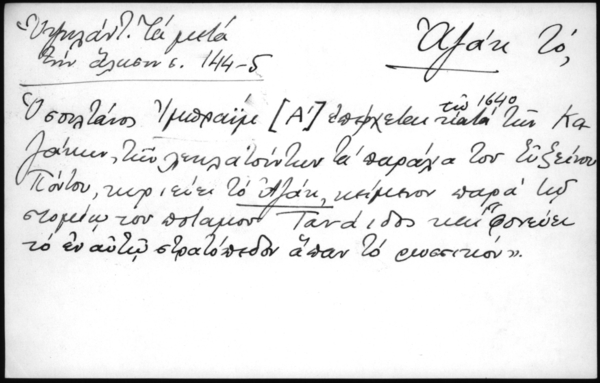 Ὑψηλάντ. Τὰ μετὰ
τὴν ἅλωσιν σ. 144-5
Ἀζάκ τό,
Ὁ σουλτάνος Ἰμπραῒμ [Α'] ἐπέρχεται τῷ 1640 κατὰ τῶν Κα-
ζάκων, τῶν λεηλατούντων τὰ παράλια τοῦ Εὐξείνου
Πόντου, κυριεύει τὸ Ἀζάκ, κείμενον παρὰ τῷ
στομίῳ τοῦ ποταμοῦ Τανάϊδος καὶ "φονεύει
τὸ ἐν αὐτῷ στρατόπεδον ἅπαν τὸ ρωσσικόν».